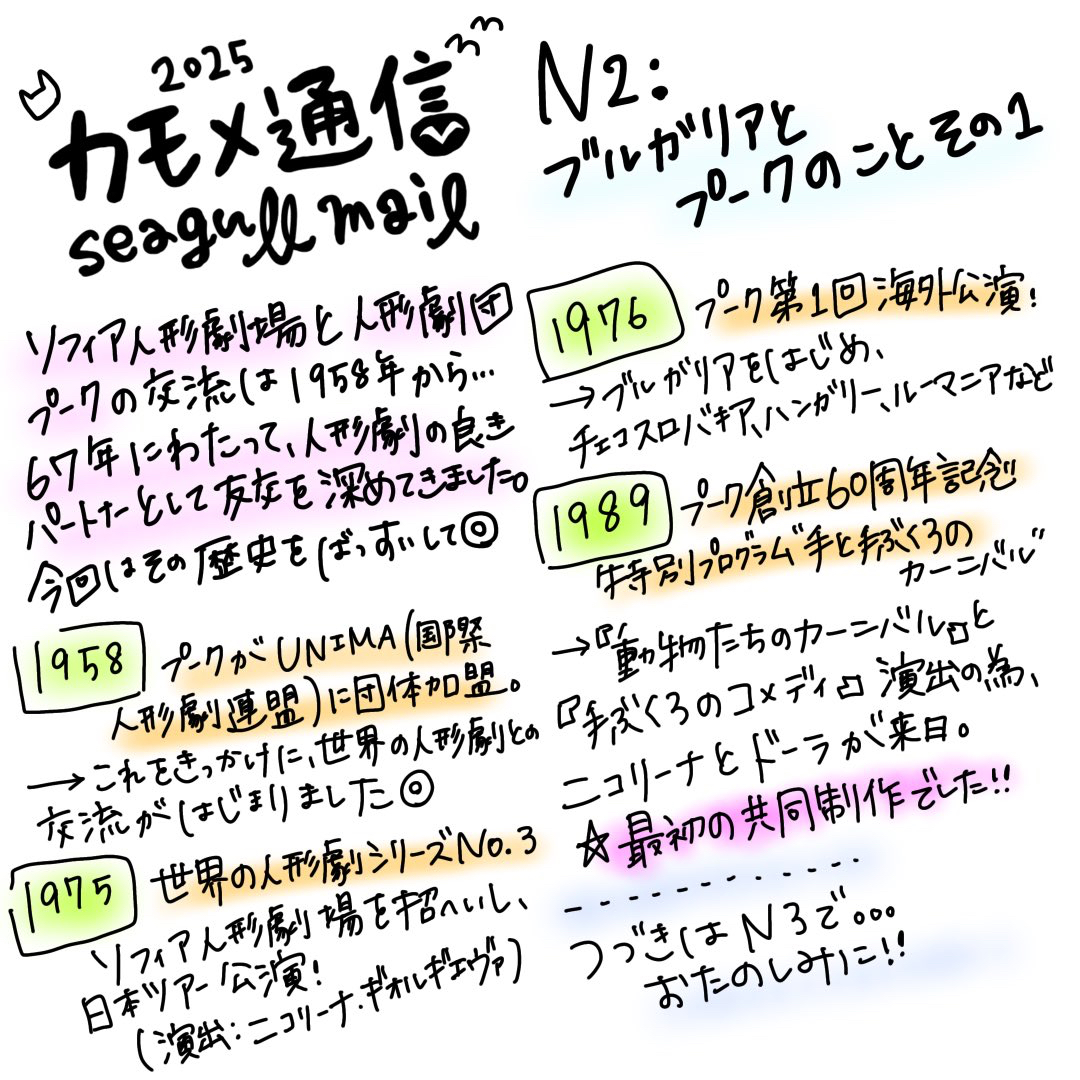 2025
カモメ通信
seagull mail
ソフィア人形劇場と人形劇団
プークの交流は1958年から…
67年にわたって、人形劇の良き
パートナーとして友好を深めてきました。
今回はその歴史をばっすいして◎
1958 プークがUNIMA(国際
人形劇連盟)に団体加盟。
→これをきっかけに、世界の人形劇との
交流がはじまりました◎
1975 世界の人形劇シリーズNo.3
ソフィア人形劇場を招へいし、
日本ツアー公演!
(演出:ニコリーナ・ギオルギエヴァ)
N2:
ブルガリアと
プークのこと その1
1976 プーク第1回海外公演!
→ブルガリアをはじめ、
チェコスロバキア、ハンガリー、ルーマニアなど
1989 プーク創立60周年記念
特別プログラム"手と手ぶくろの
カーニバル"
→『動物たちのカーニバル』と
『手ぶくろのコメディ』演出の為、
ニコリーナとドーラが来日。
☆最初の共同制作でした!!
------------
つづきはN3で…
おたのしみに!!